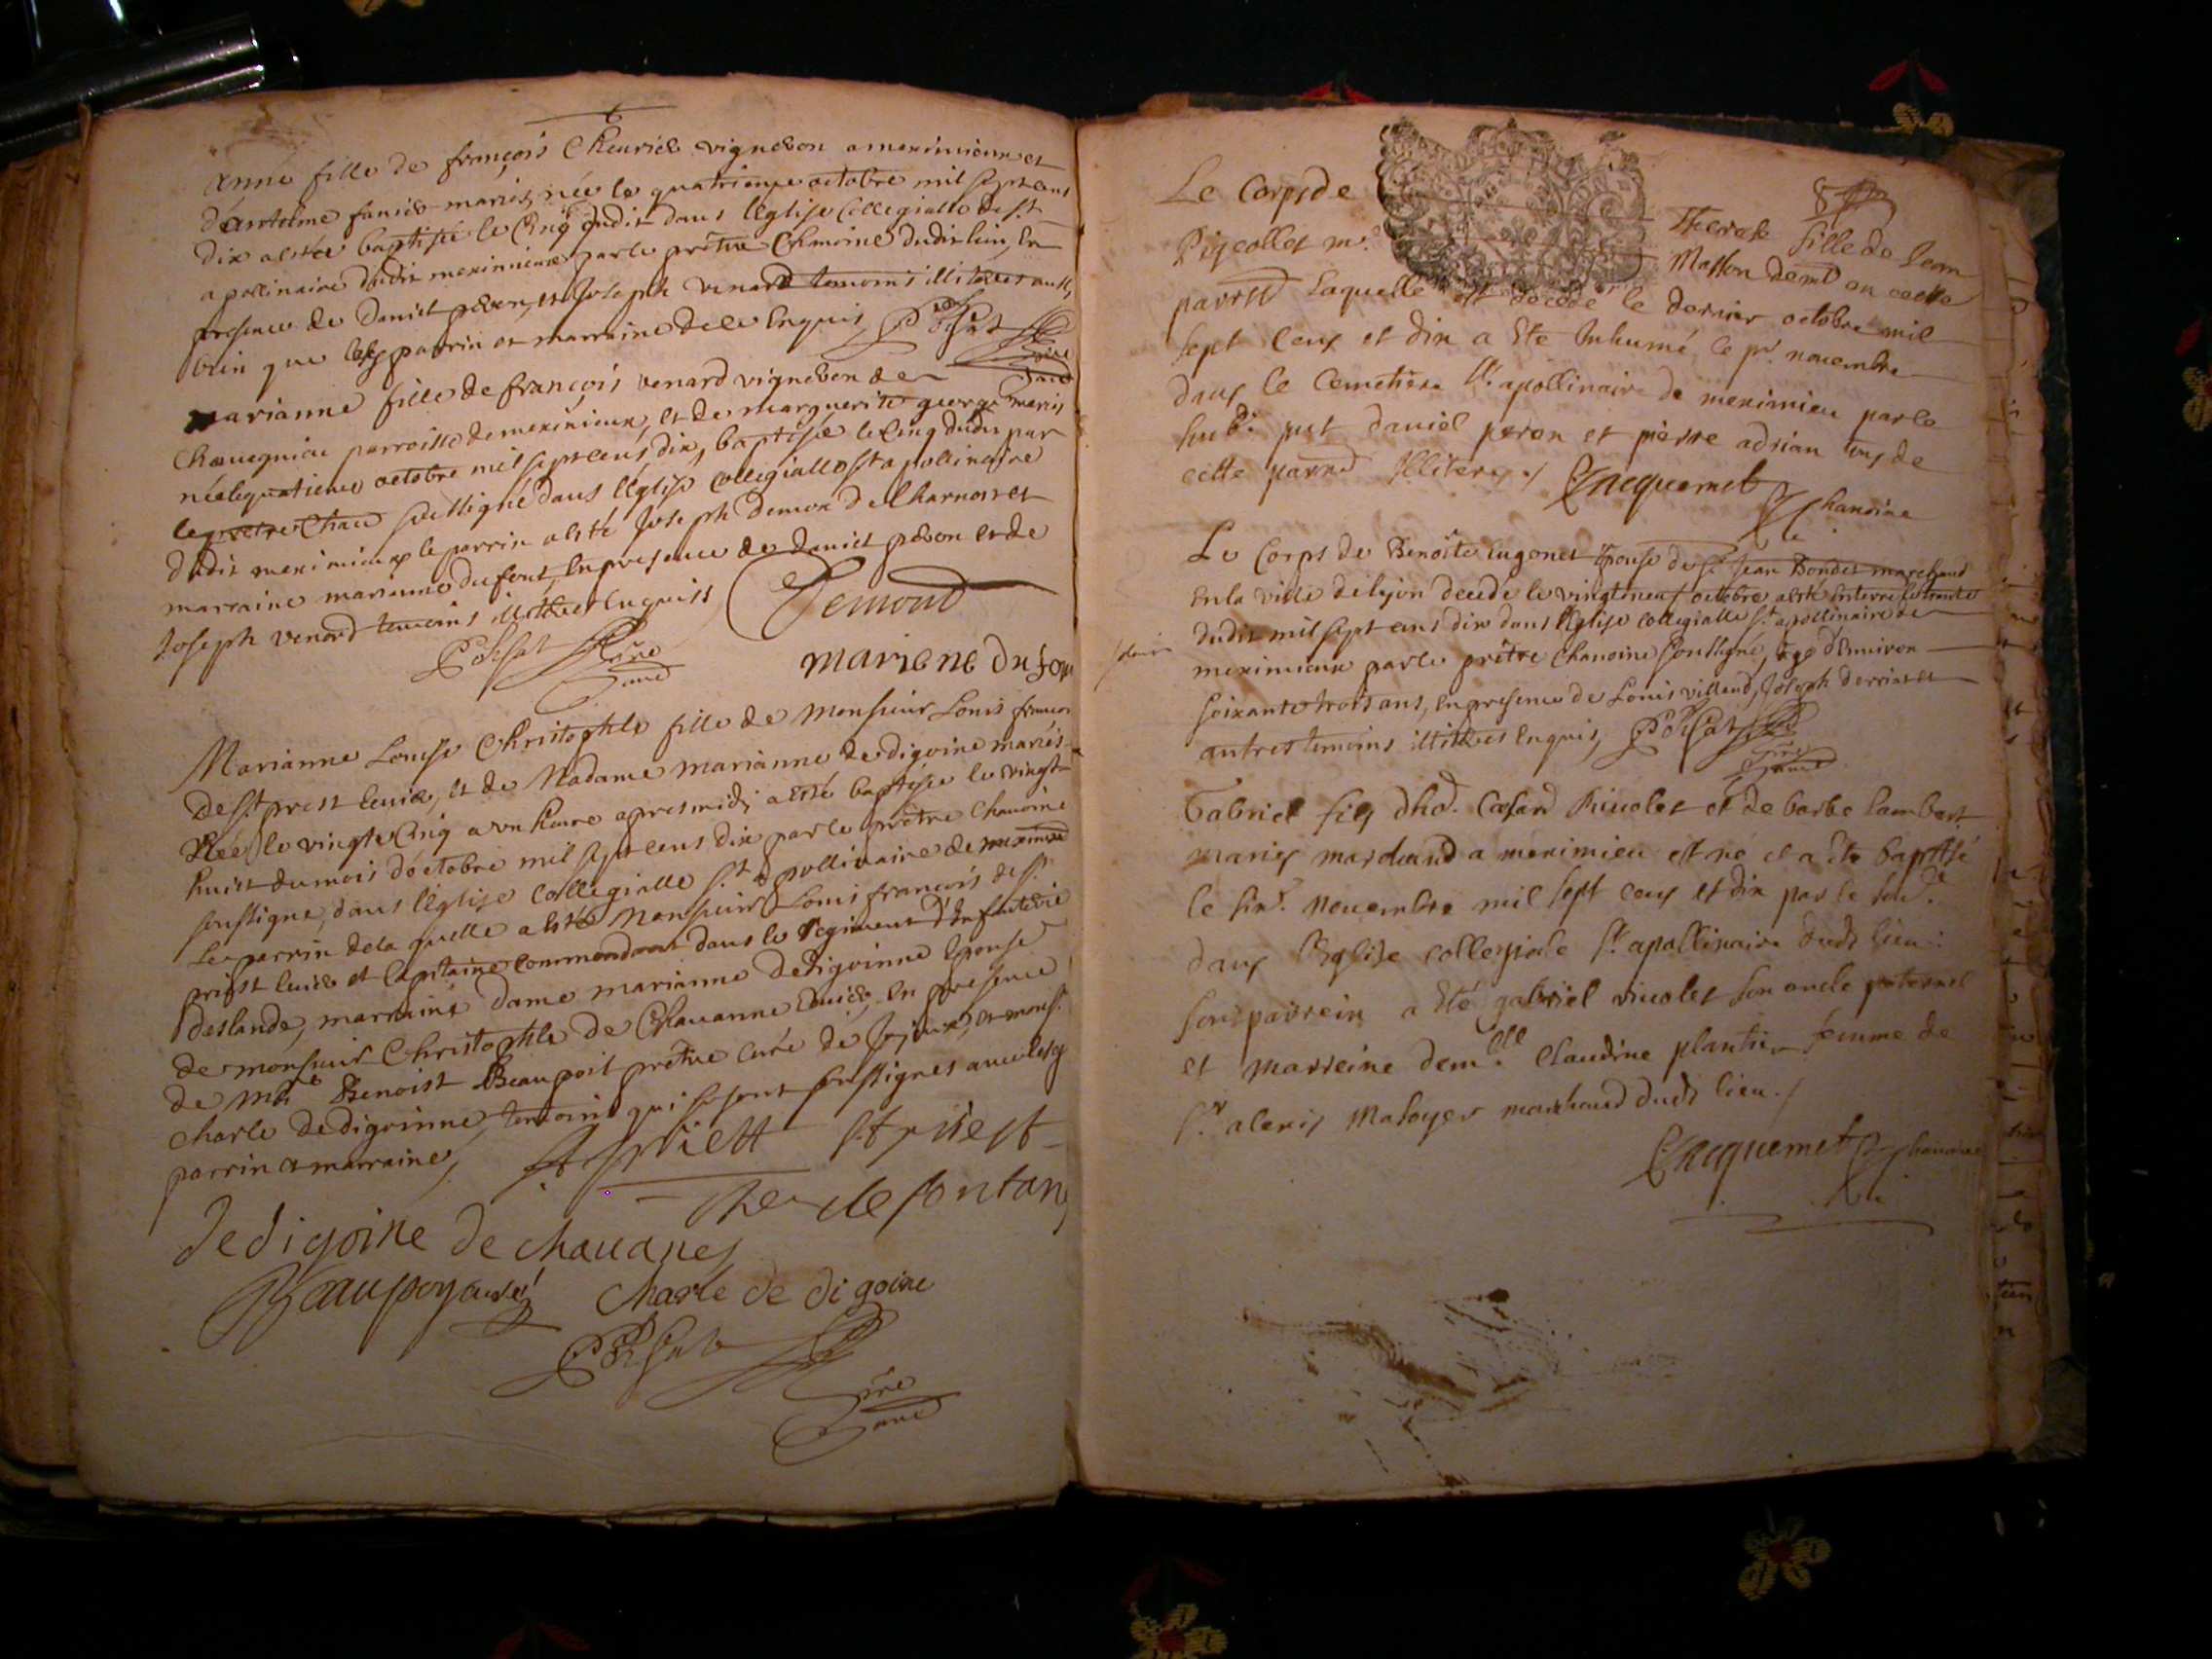 Anne fille de françois Cheurier vigneron a meximieux et
d'antoine mariés, née le quatrieme octobre mil sept cens
dix a esté baptisée le Cinq dudit dans l'eglise Collegialle de St
apollinaire dudit meximieux par le prêtre Chanoine dudit lieu, En
presence de Daniel peron, et Joseph venard temoins illiteres aussy
bien que parrin et marraine de ce Enquis, Poisat
pre
marianne fille de françois venard vigneron de
parroisse de meximieux, et de marguerite george mariés
née le quatrieme octobre mil sept cens dix, baptisée le Cinq dudit par
le prêtre soussigné dans l'Eglise Collegialle St apollinaire
dudit meximieux le parrin a esté Joseph demon de Charnoz et
marraine marianne dufour, En presence de Daniel peron et de
Joseph venard temoins illitteres Enquiss Demont
Poisat pre
mariene dufour
Marianne Louise Christophle fille de Monsieur Louis françois
de St prest et de Madame Marianne de digoine mariés
Née le vingt Cinq a un heure apresmidi a esté baptisée le vingt
huict du mois d'octobre mil sept cens dix par le prêtre Chanoine
soussigné, dans l'Eglise Collegialle St apollinaire de meximieux
Le parrin de la quelle a esté Monsieur Louis françois de St
priest et Capitaine commandant dans le Regiment d'Infanterie
deslande, marraine dame marianne dedigoinne Epouse
de monsieur Christophle de Chauanne en presence
de Benoist Beaupoil prêtre curé de et mons.r
Charle dedigoinne, temoins qui se sont soussignes avec lesq
parrin et marraine,
St priest St priest
de fontane
de digoine de chauanes
Beaupoy curé Charle de digoine
Poisat
pre
8
Le Corps de Therese fille de Jean
Pigeollet Masson en cette
laquelle est decedé le dernier octobre mil
sept Cens et dix a Eté Inhumé le pr. novembre
dans le Cemetiere St. apollinaire de meximieu par le
daniel peron et pierre adrian de
cette Illiteres / Jacquemet
Chanoine
Le Corps de Benoite Epouse de Sr Jean Bondet marchand
En la ville de lyon decedé le vingt neuf octobre a esté Enterré le trente
dudit mil sept cens dix dans l'Eglise collegialle St apollinaire de
meximieux par le prêtre Chanoine soussigné, agé d'Environ
soixante trois ans, En presence de Louis villand, Joseph et
autres temoins illitteres Enquis, Poisat
pre
Gabriel fils Cesard et de barbe Lambert
mariés marchand a meximieu est né et a ete baptisé
le novembre mil sept cens et dix par le
dans l'Eglise collegiale St. apollinaire dudt lieu:
son parrein a Eté gabriel son oncle paternel
et marreine dem.elle Claudine plantier femme de
Sr alexis marchand dudt lieu. /
Jacquemet Chanoine